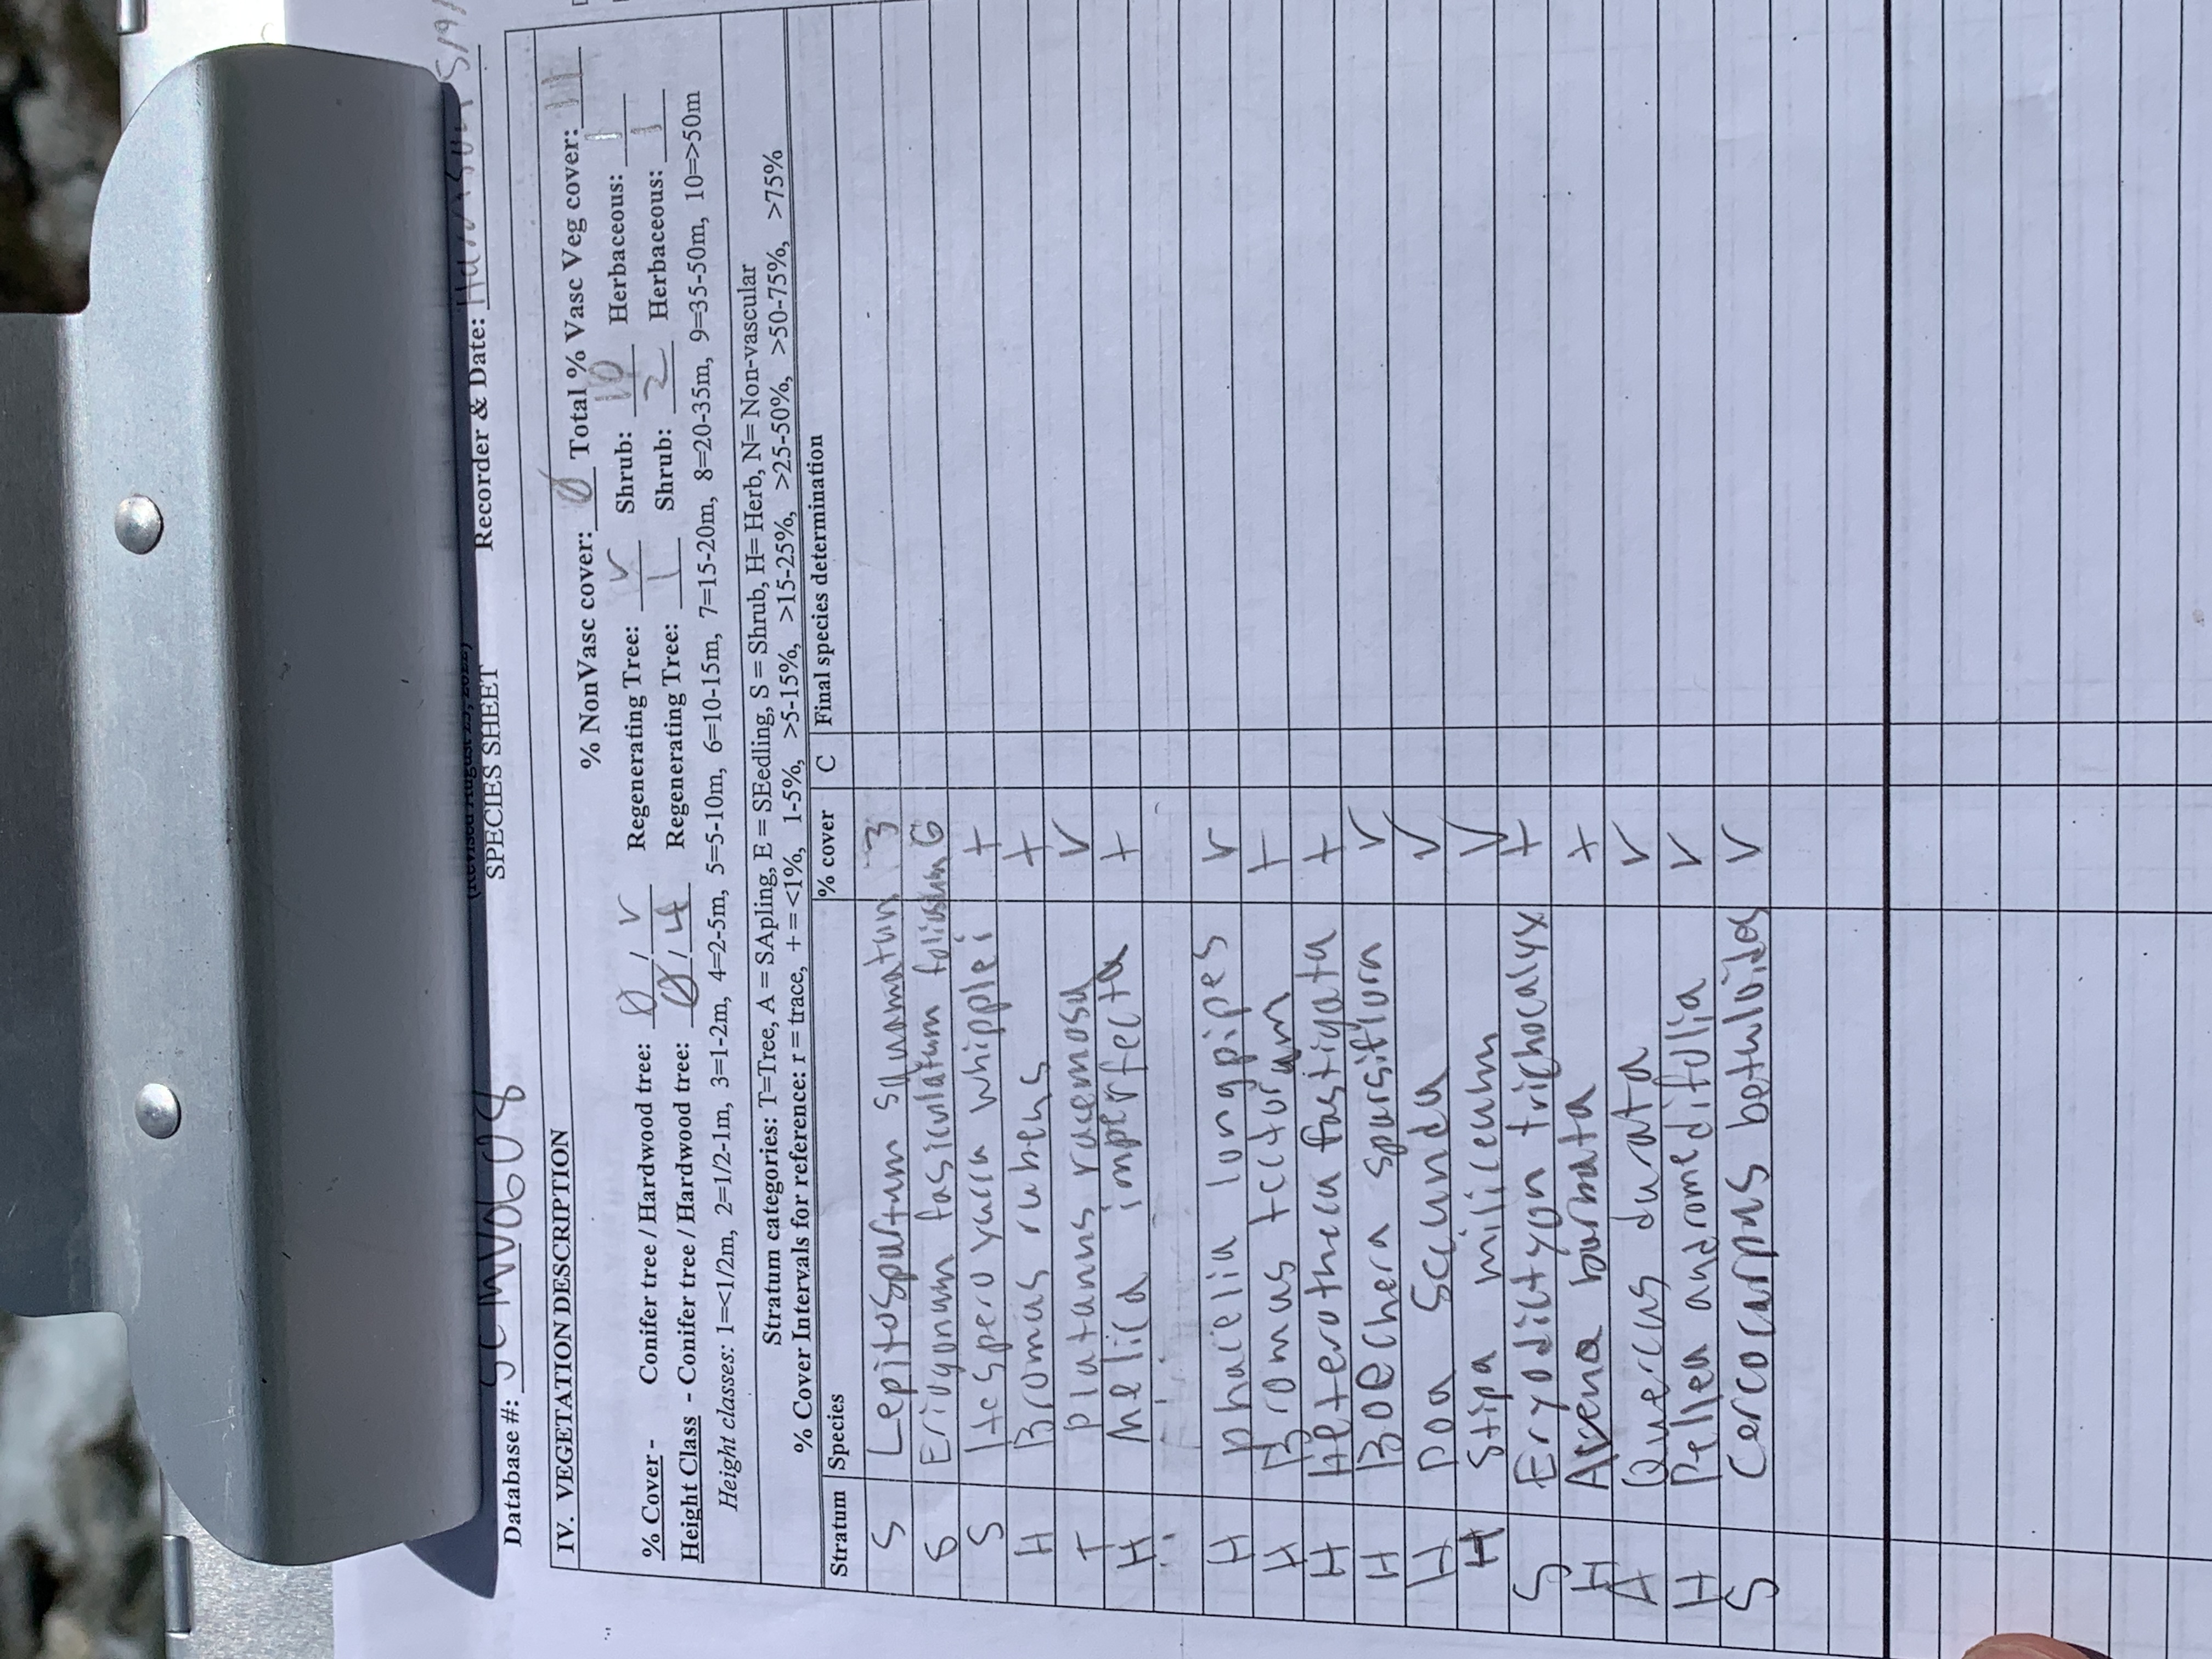 SPECIES SHEET
Database #: SCMV0608 Recorder & Date:
IV. VEGETATION DESCRIPTION
% NonVasc cover: Ø Total % Vasc Veg cover: 11
% Cover - Conifer tree / Hardwood tree: Ø / r Regenerating Tree: r Shrub: 10 Herbaceous: 1
Height Class - Conifer tree / Hardwood tree: Ø / 4 Regenerating Tree: 1 Shrub: 2 Herbaceous: 1
Height classes: 1=<1/2m, 2=1/2-1m, 3=1-2m, 4=2-5m, 5=5-10m, 6=10-15m, 7=15-20m, 8=20-35m, 9=35-50m, 10=>50m
Stratum categories: T=Tree, A = SApling, E = SEedling, S = Shrub, H= Herb, N= Non-vascular
% Cover Intervals for reference: r = trace, + = <1%, 1-5%, >5-15%, >15-25%, >25-50%, >50-75%, >75%
Stratum Species % cover C Final species determination
S Lepitospartum squamatum 3
S Eriogonum fasiculatum foliosum 6
S Hespero yucca whipplei +
H Bromus rubens +
T platanus racemosa r
H Melica imperfecta +
H phacelia longpipes r
H Bromus tectorum +
H Heterotheca fastigata +
H BOEChera sparsiflora r
H poa Secunda r
H Stipa miliceum r
S Eryodictyon triphocalyx +
H Avena barbata +
A Quercus durata r
H Pellea andromedifolia r
S Cercocarpus betuloides r